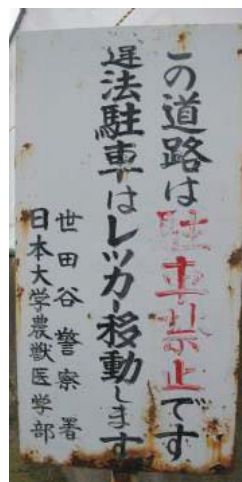 この道路は駐車禁止です
違法駐車はレッカー移動します
世田谷警察署
日本大学農獣医学部